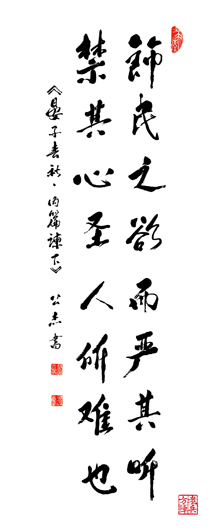 飾民之欲而严其听
禁其心圣人所难也
《晏子春秋·内篇諫下》 公杰書